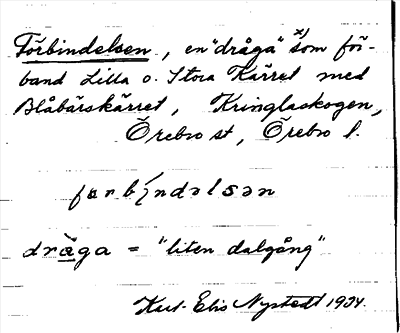 Förbindelsen, en "dråga" x) som för-
band Lilla o. Stora Kärret med
Blåbärskärret, Kringlaskogen,
Örebro st, Örebro l.
farbíndəlsən
dråga = "liten dalgång"
Karl-Elis Nystedt 1934.